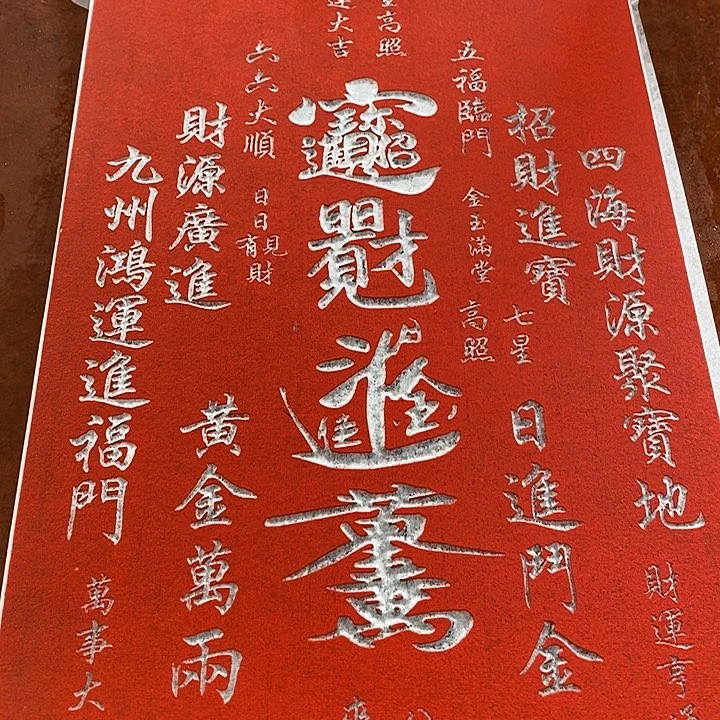 四海財源聚寶地
財運亨
招財進寶
七星
日進鬥金
高照
五福臨門
金玉滿堂
高照
大吉
六六大順
日日有見財
財源廣進
黃金萬兩
九州鴻運進福門
萬事大